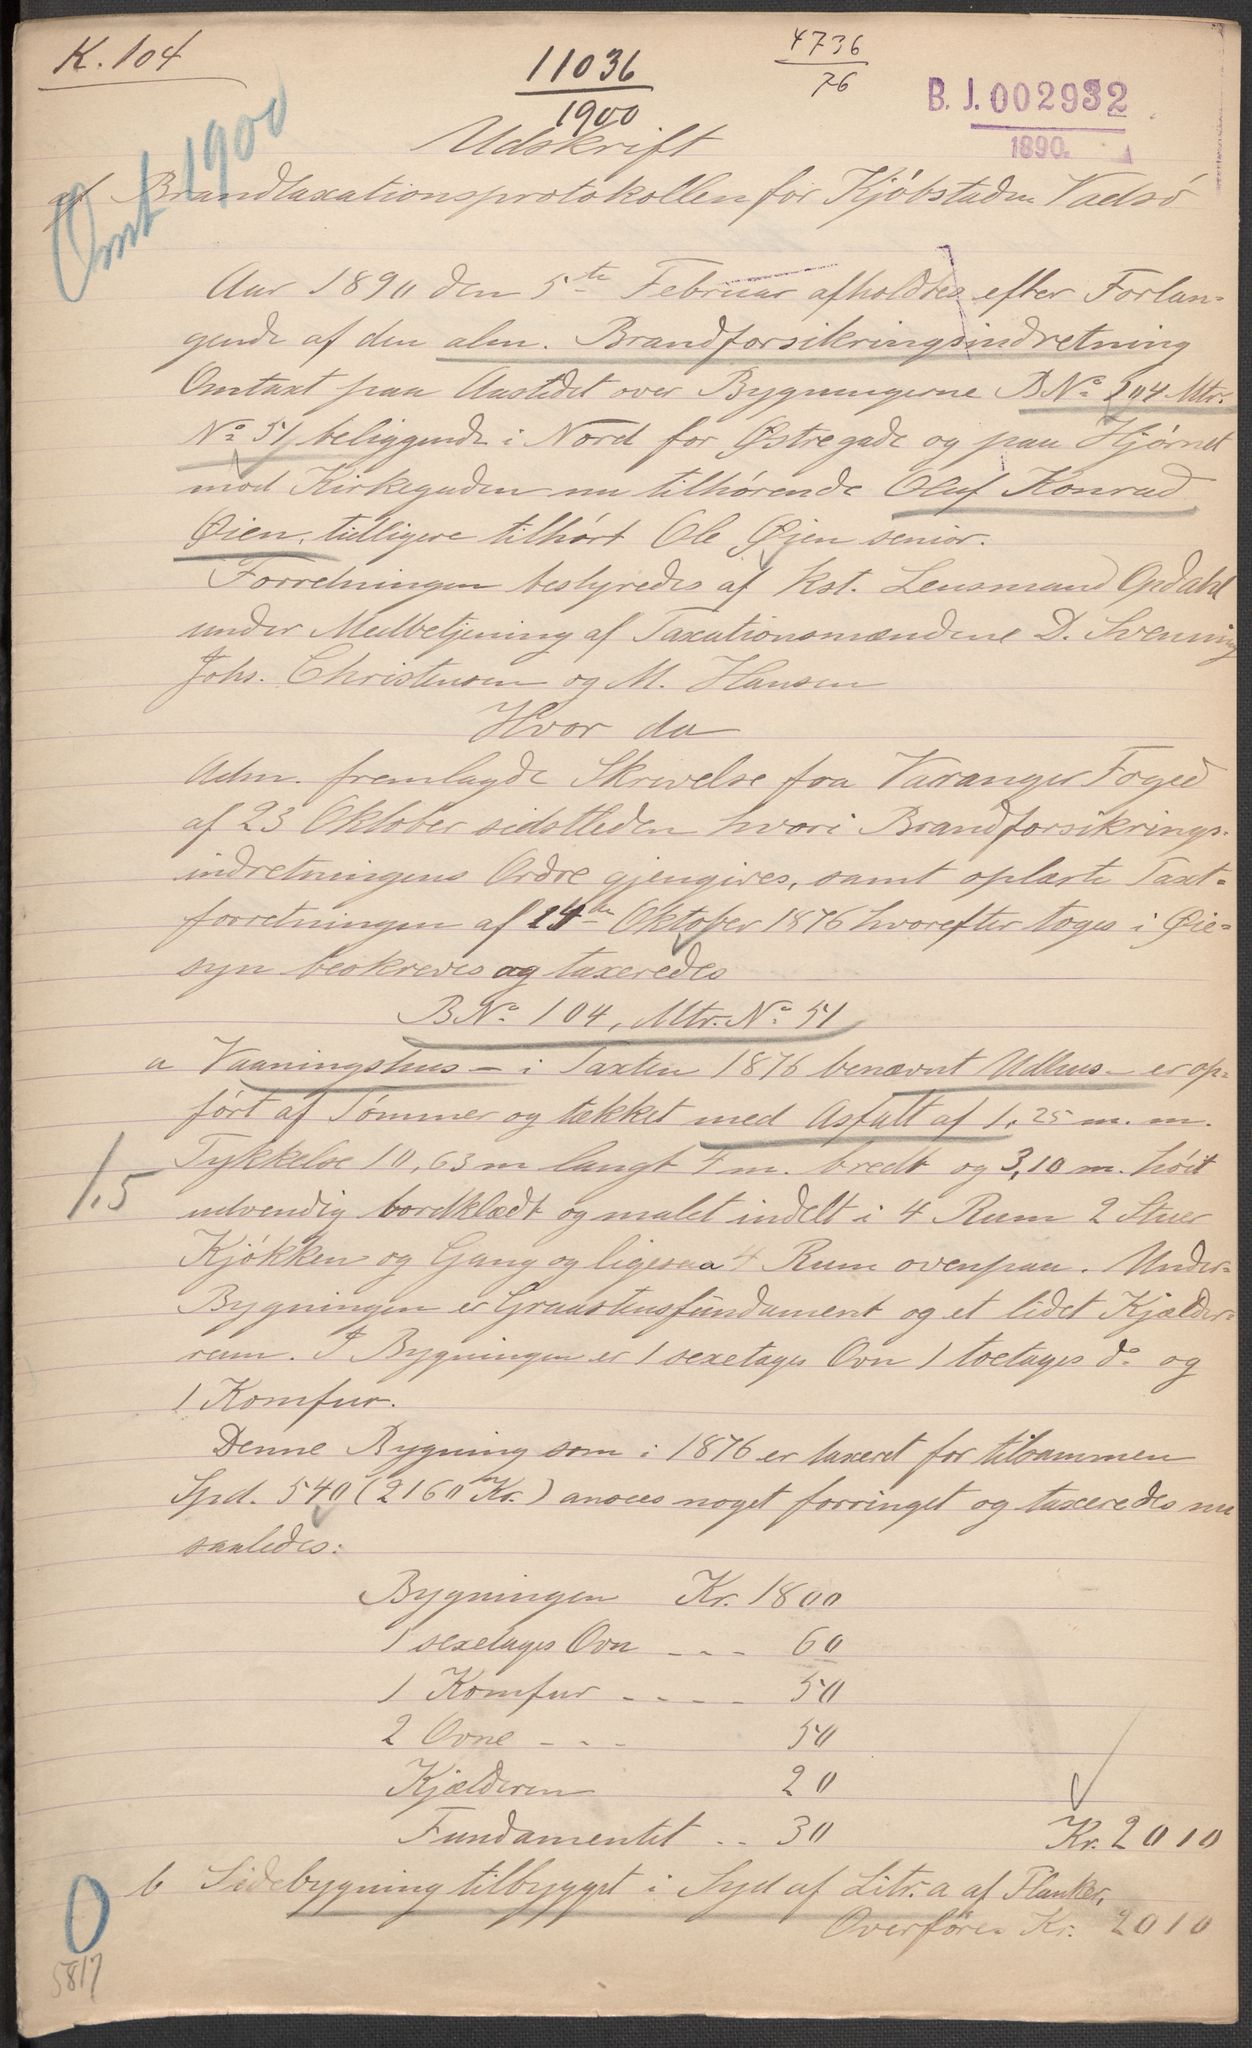 K. 104
11036
1900
4736
76
B. J. 002932
1890.
Omt 1900
Udskrift
af Brandtaxationsprotokollen for Kjøbstaden Vadsø
Aar 1890 den 5te Februar afholdtes efter Forlan-
gende af den alm. Brandforsikringsindretning
Omtaxt paa Aastedet over Bygningerne BNo 104 Mtr.
No 51 beliggende i Nord for Østregade og paa Hjørnet
mod Kirkegaden nu tilhørende Oluf Konrad
Øien, tidligere tilhørt Ole Øien senior.
Forretningen bestyredes af kst. Lensmand Opdahl
under Medbetjening af Taxationsmændene D. Svenning
Johs. Christensen og M. Hansen
Hvor da
Adm. fremlagde Skrivelse fra Varanger Foged
af 23 Oktober sidstleden hvori Brandforsikrings-
indretningens Ordre gjengives, samt oplæste Taxt-
forretningen af 24de Oktober 1876 hvorefter toges i Øie-
syn beskreves og taxeredes
BNo 104, Mtr. No 51
a Vaaningshus - i Taxten 1876 benævnt Udhus - er op-
ført af Tømmer og tækket med Asfalt af 1,25 m.m.
Tykkelse 10,63 m langt 7 m. bredt og 3,10 m. høit
1,5
udvendig bordklædt og malet indelt i 4 Rum 2 Stuer
Kjøkken og Gang og ligesaa 4 Rum ovenpaa. Under-
Bygningen er Graastensfundament og et lidet Kjælder-
rum. I Bygningen er 1 sexetages Ovn 1 toetages do og
1 Komfur.
Denne Bygning som i 1876 er taxeret for tilsammen
Spd. 540 (2160 Kr.) ansees noget forringet og taxeredes nu
saaledes:
Bygningen Kr. 1800
1 sexetages Ovn - - - 60
1 Komfur - - - - 50
2 Ovne - - - 50
Kjælderen 20
Fundamentet - - 30 Kr. 2010
b Sidebygning tilbygget i Syd af Litr. a af Planker,
Overføres Kr. 2010
0
5817